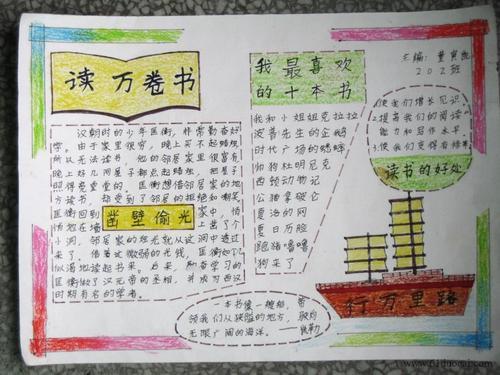 读万卷书
汉朝时的少年匡衡，非常勤奋好
学。由于家里很穷，晚上买不起蜡烛
所以无法读书，他的邻居家里很富有
晚上好几间屋子都点起蜡烛，把屋子
照得亮堂堂的。匡衡想借邻居家的地
方读书，却受到了邻居的拒绝和嘲笑
匡衡回到
凿壁偷光
家中，悄
悄地在
上凿了个
小洞，邻居家的烛光就从这洞中透过
来了。借着这微弱的光线，匡衡如
似渴地读起书来。后来，
学习的
匡衡做了汉元帝的丞相，并成为西汉
时期有名的学者。
我最喜欢
的十本书
我和小姐姐克拉拉
波普先生的企鹅
时代广场的蟋蟀
帅狗杜明尼克
西顿动物记
公猪拿破仑
夏洛的网
夏日历险
跑猪噜噜
狗来了
主编：董寅
202班
1使我们增长见识
2提高我们的阅读
能力和写作水平
3使我们变得有
读书的好处
行万里路
一本书像一艘船，带
领我们从狭隘的地方，驶向
无限广阔的海洋。——凯勒